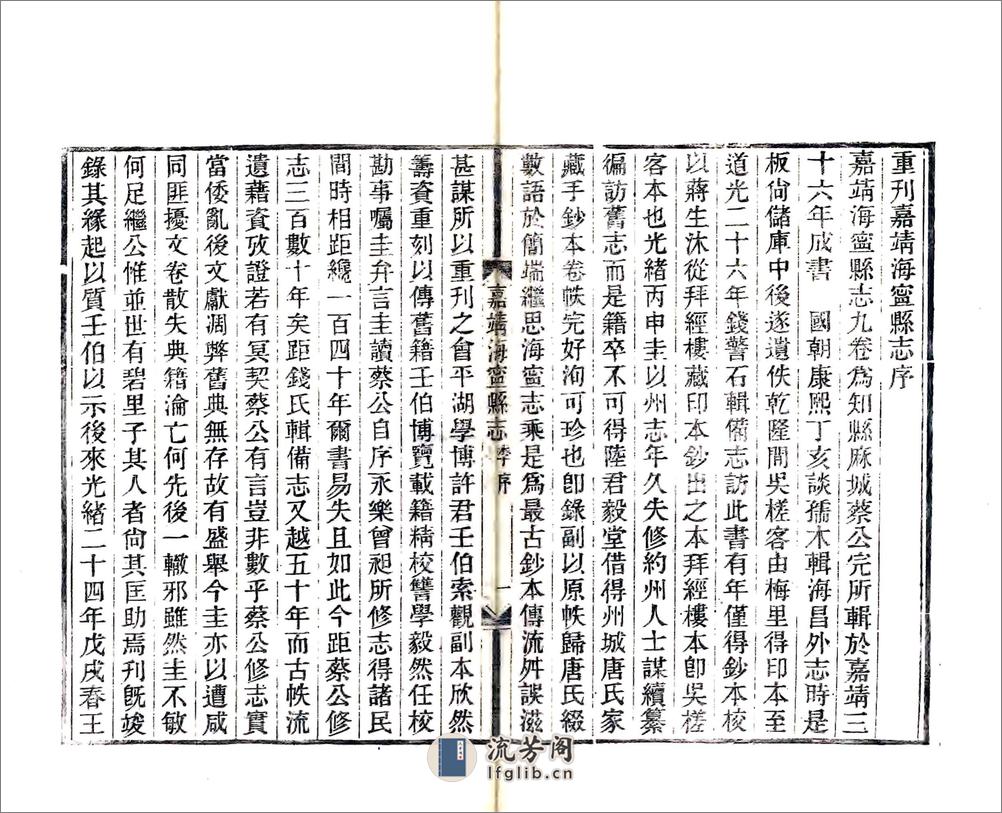 重刊嘉靖海寧縣志序
嘉靖海寧縣志九卷爲知縣麻城蔡公完所輯於嘉靖三
十六年成書　國朝康熙丁亥談孺木輯海昌外志時是
板尙儲庫中後遂遺佚乾隆間吳槎客由梅里得印本至
道光二十六年錢警石輯備志訪此書有年僅得鈔本校
以蔣生沐從拜經樓藏印本鈔出之本拜經樓本卽吳槎
客本也光緒丙申圭以州志年久失修約州人士謀續纂
徧訪舊志而是籍卒不可得陸君毅堂借得州城唐氏家
藏手鈔本卷帙完好洵可珍也卽錄副以原帙歸唐氏綴
數語於簡端繼思海寧志乘是爲最古鈔本傳流舛誤滋
嘉靖海寧縣志 李序 一
甚謀所以重刊之會平湖學博許君壬伯索觀副本欣然
籌資重刻以傳舊籍壬伯博覽載籍精校讐學毅然任校
勘事囑圭弁言圭讀蔡公自序永樂曾昶所修志得諸民
間時相距纔一百四十年爾書易失且如此今距蔡公修
志三百數十年矣距錢氏輯備志又越五十年而古帙流
遺藉資攷證若有冥契蔡公有言豈非數乎蔡公修志實
當倭亂後文獻凋弊舊典無存故有盛舉今圭亦以遭咸
同匪擾文卷散失典籍淪亡何先後一轍邪雖然圭不敏
何足繼公惟並世有碧里子其人者尙其匡助焉刊旣竣
錄其緣起以質壬伯以示後來光緒二十四年戊戌春王
流芳阁
lfglib.cn